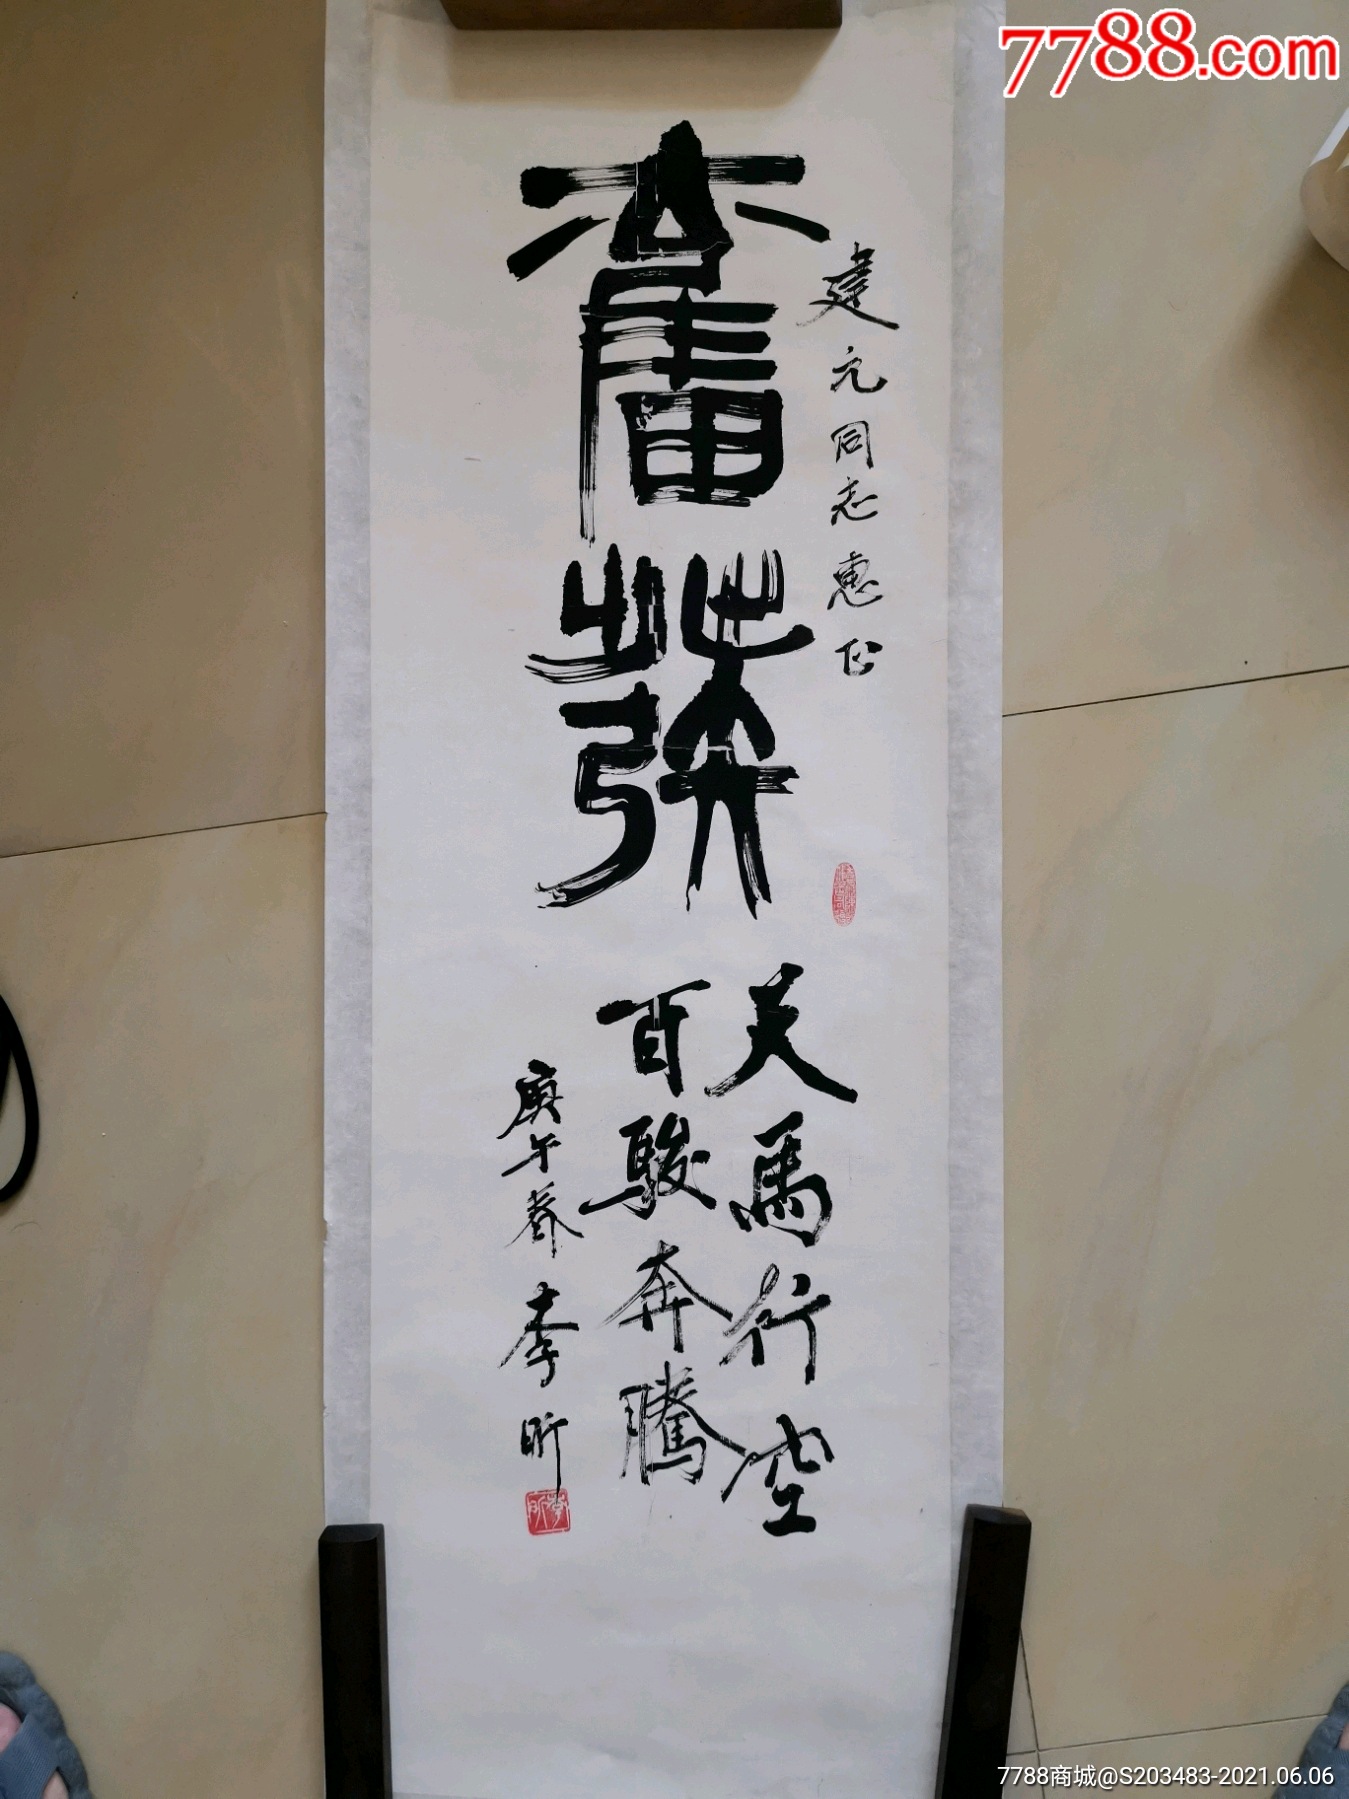 7788.com
建元同志惠正
奮發
天馬行空
百駿奔騰
庚午春 李昕
李昕
7788商城@S203483-2021.06.06